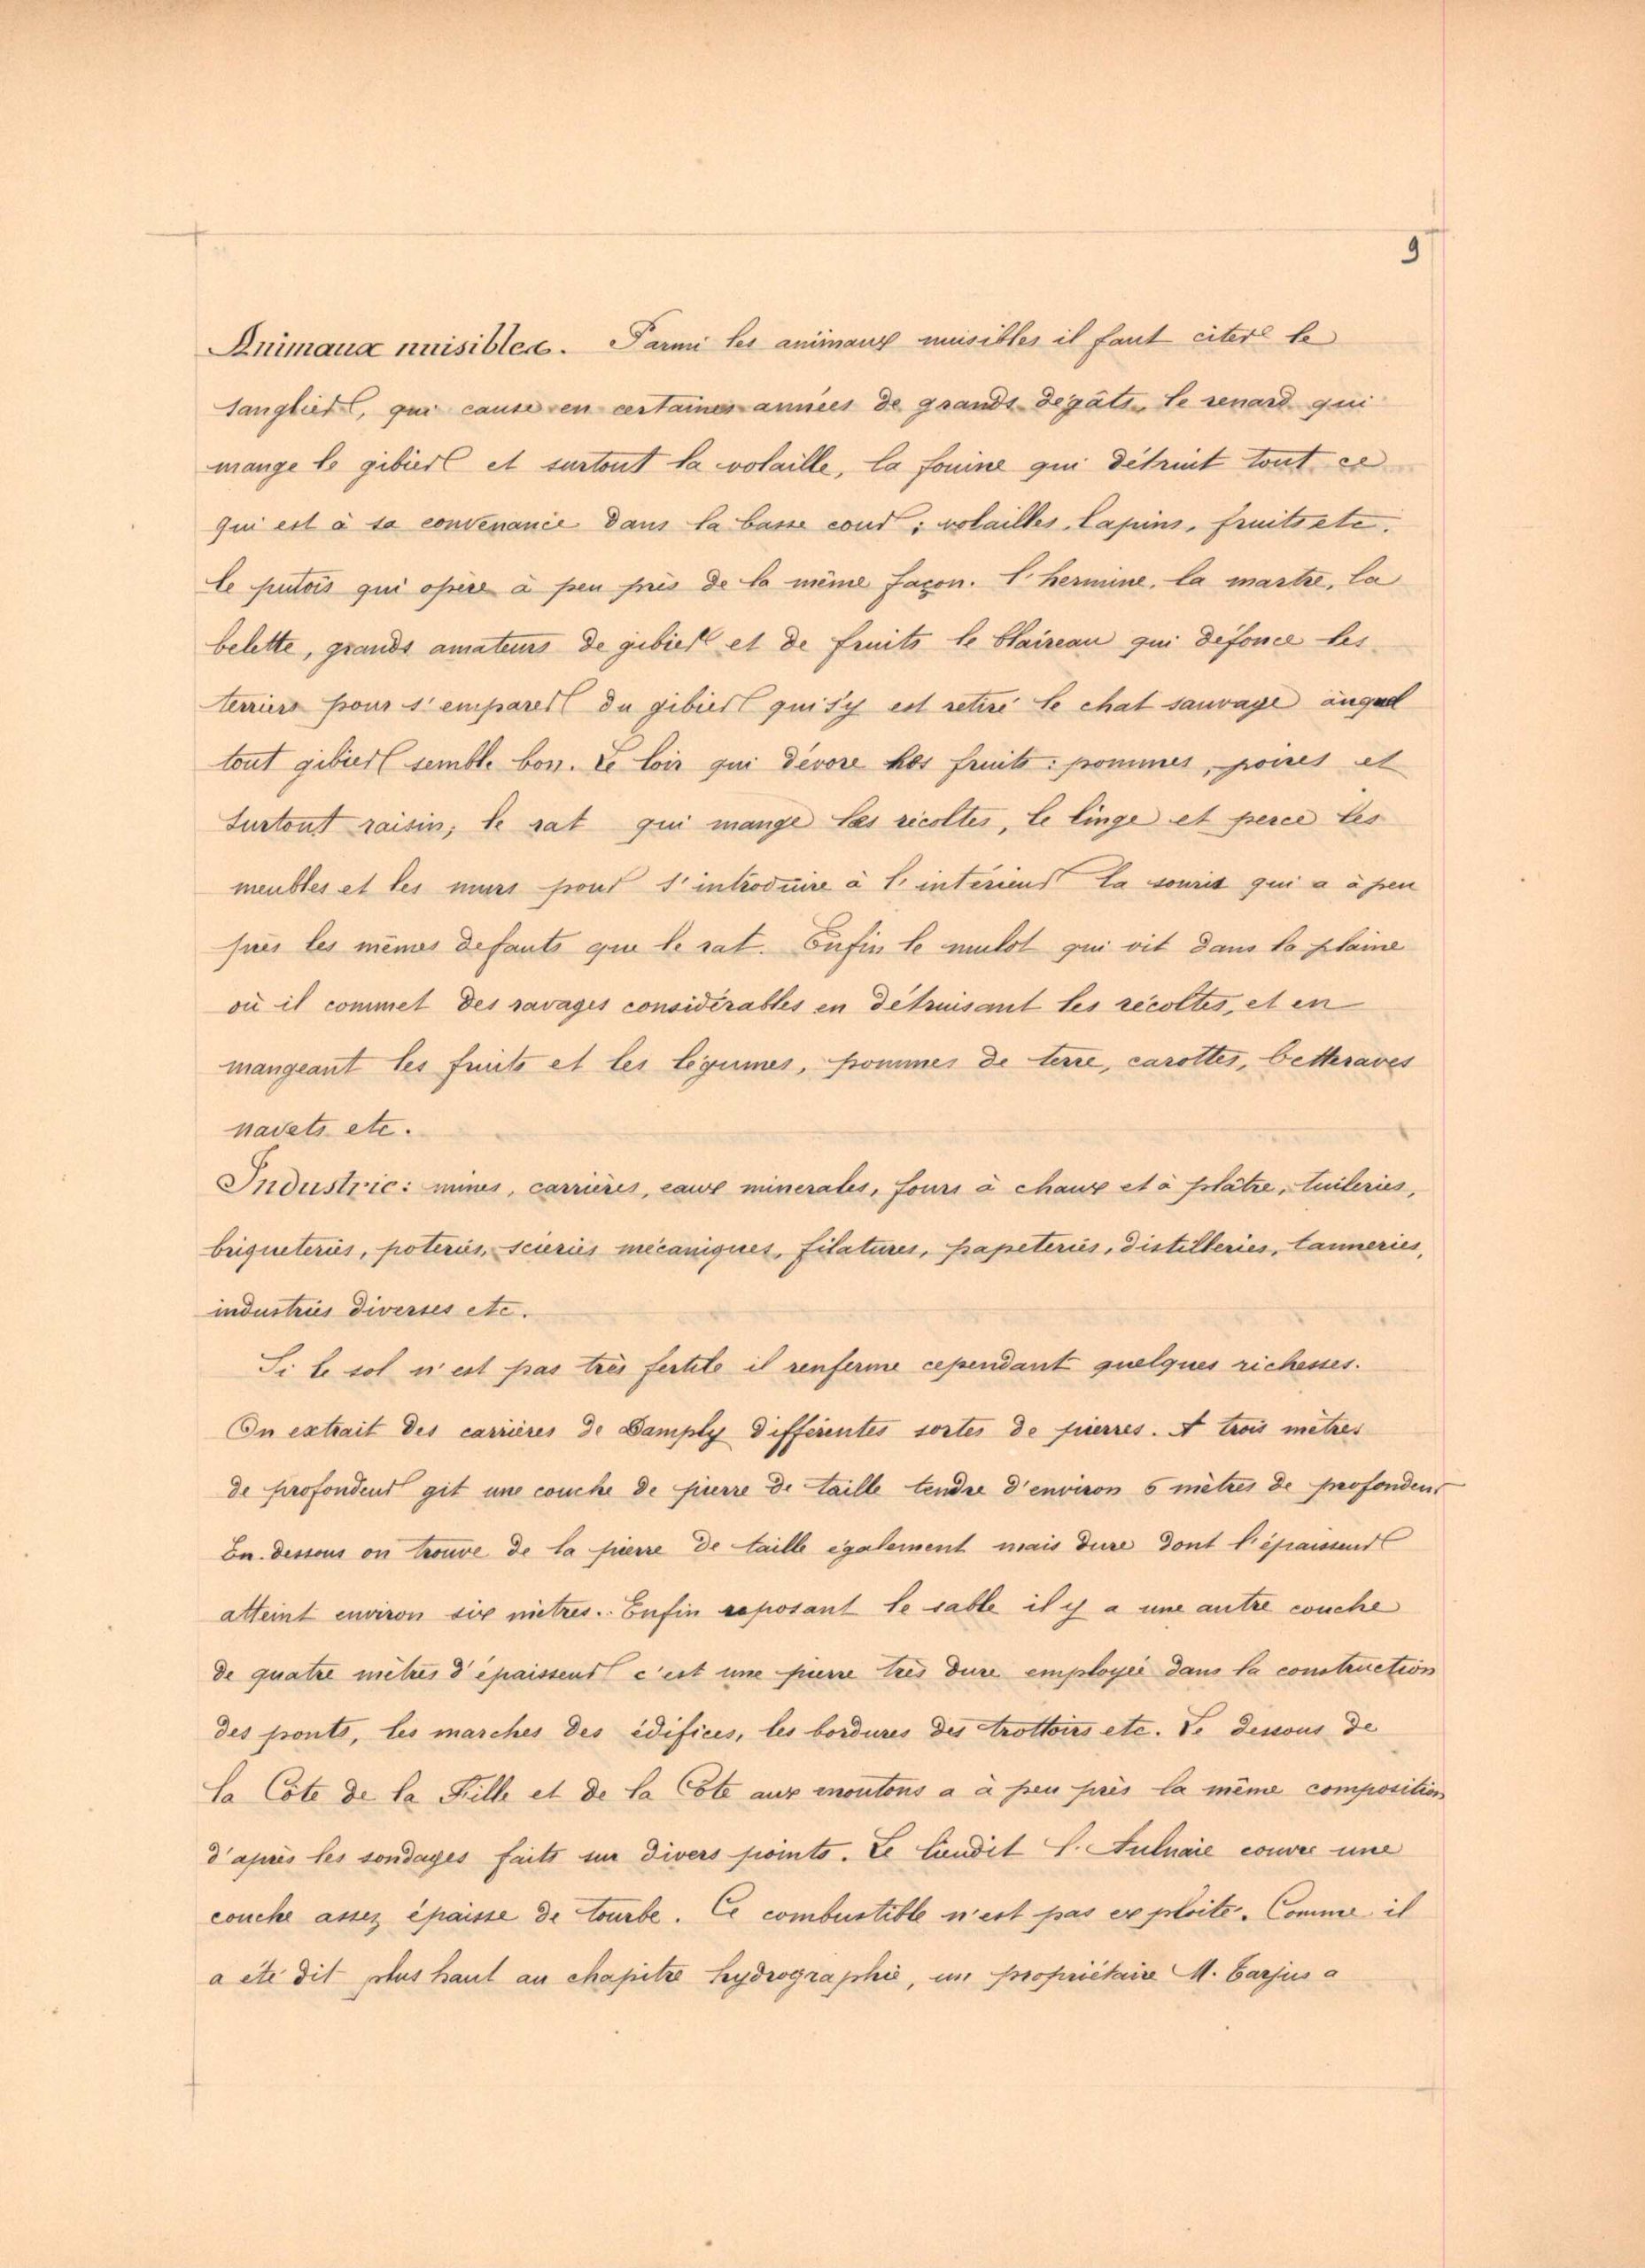 9
Animaux nuisibles. Parmi les animaux nuisibles il faut citer le
sanglier, qui cause en certaines années de grands dégâts, le renard qui
mange le gibier et surtout la volaille, la fouine qui détruit tout ce
qui est à sa convenance dans la basse cour ; volailles, lapins, fruits etc.
le putois qui opère à peu près de la même façon. l'hermine, la martre, la
belette, grands amateurs de gibier et de fruits le blaireau qui défonce les
terriers pour s'emparer du gibier qui s'y est retiré le chat sauvage auquel
tout gibier semble bon. Le loir qui dévore les fruits : pommes, poires et
surtout raisin ; le rat qui mange les récoltes, le linge et perce les
meubles et les murs pour s'introduire à l'intérieur la souris qui a à peu
près les mêmes défauts que le rat. Enfin le mulot qui vit dans la plaine
où il commet des ravages considérables en détruisant les récoltes, et en
mangeant les fruits et les légumes, pommes de terre, carottes, betteraves
navets etc.
Industrie : mines, carrières, eaux minerales, fours à chaux et à plâtre, tuileries,
briqueteries, poteries, scieries mécaniques, filatures, papeteries, distilleries, tanneries,
industries diverses etc.
Si le sol n'est pas très fertile il renferme cependant quelques richesses.
On extrait des carrières de Damply différentes sortes de pierres. A trois mètres
de profondeur git une couche de pierre de taille tendre d'environ 5 mètres de profondeur
En dessous on trouve de la pierre de taille également mais dure dont l'épaisseur
atteint environ six mètres. Enfin reposant le sable il y a une autre couche
de quatre mètres d'épaisseur c'est une pierre très dure employée dans la construction
des ponts, les marches des édifices, les bordures des trottoirs etc. Le dessous de
la Côte de la Fille et de la Côte aux moutons a à peu près la même composition
d'après les sondages faits sur divers points. Le lieudit l'Aulnaie couvre une
couche assez épaisse de tourbe. Ce combustible n'est pas exploité. Comme il
a été dit plus haut au chapitre hydrographie, un propriétaire M. Barjus a